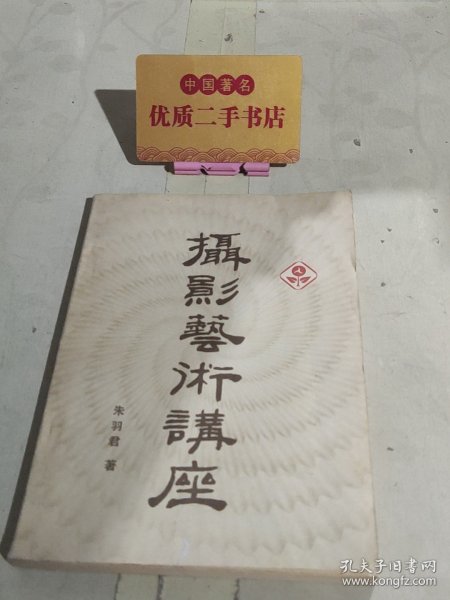 中国著名
优质二手书店
攝影藝術講座
朱羽君 著
孔夫子旧书网
www.kongfz.com